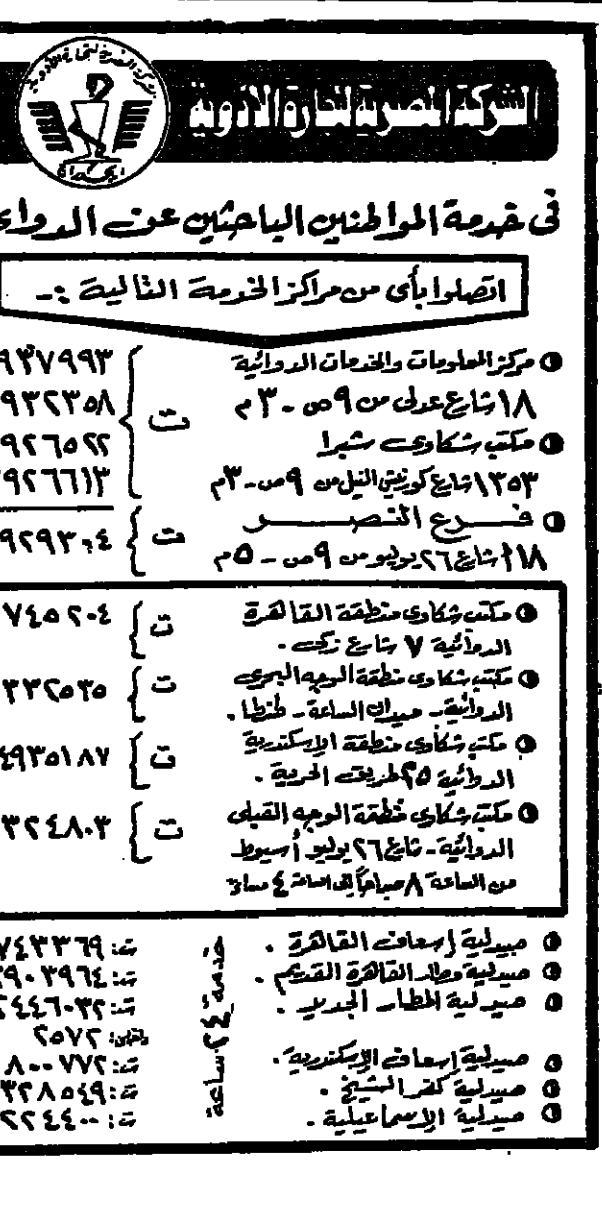 الشركة المصرية لتجارة الأدوية
فى خدمة المواطنين الباحثين عن الدواء
اتصلوا بأى من مراكز الخدمة التالية :-
مركز المعلومات والخدمات الدوائية
١٨ شارع عدلى من ٩ص - ٣م
مكتب شكاوى شبرا
١٣٥٣ شارع كورنيش النيل من ٩ص - ٣م
ت
٩٣٧٩٩٣
٩٣٢٣٥٨
٩٢٦٥٢٢
٩٢٦٦١٣
فرع النصر
شارع ٢٦ يوليو من ٩ص - ٥م
ت
مكتب شكاوى منطقة القاهرة
الدوائية ٧ شارع زكى .
ت ٧٤٥٢٠٤
مكتب شكاوى منطقة الوجه البحرى
الدوائية - ميدان الساعة - طنطا .
ت ٣٣٢٥٣٥
مكتب شكاوى منطقة الإسكندرية
الدوائية ٢٥ طريق الحرية .
ت ٤٩٣٥١٨٧
مكتب شكاوى منطقة الوجه القبلى
الدوائية - شارع ٢٦ يوليو أسيوط
من الساعة ٨ صباحاً إلى الساعة ٤ مساءً
ت ٣٢٤٨٠٣
خدمة ٢٤ ساعة
صيدلية إسعاف القاهرة . ت: ٧٤٣٣٦٩
صيدلية مطار القاهرة القديم . ت: ٩٠٣٩٦٤
صيدلية المطار الجديد . ت: ٢٤٤٦٠٣٢
داخلى: ٢٥٧٢
صيدلية إسعاف الإسكندرية . ت: ٨٠٠٧٧٢
صيدلية كفر الشيخ . ت: ٣٢٨٥٤٩
صيدلية الإسماعيلية . ت: ٢٢٤٤٠٠